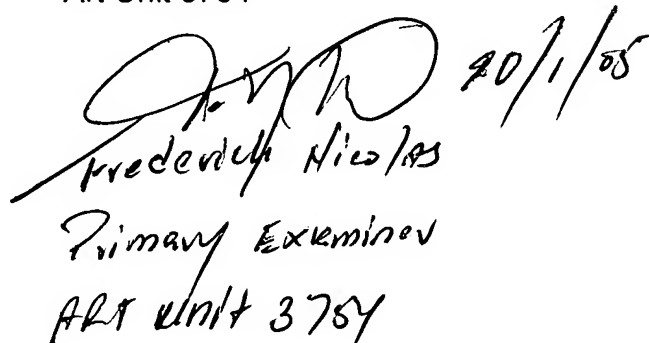 10/1/05
Frederick Nicolas
Primary Examiner
Art Unit 3754